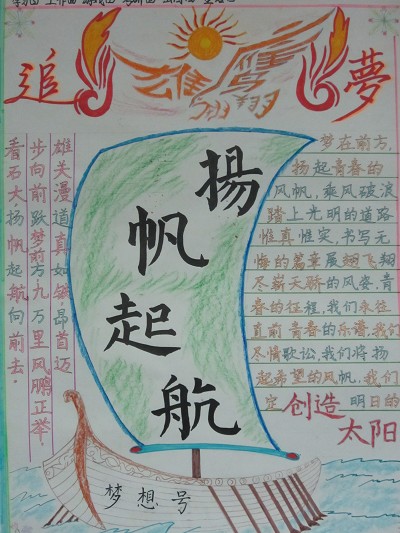 追 雄鷹翱翔 夢
揚帆起航
梦在前方,
扬起青春的
风帆,乘风破浪
踏上光明的道路
惟真惟实,书写无
悔的篇章展翅飞翔
尽薪天骄的风姿,青
春的征程,我们永往
直前 青春的乐谱,我们
尽情歌讼,我们将扬
起希望的风帆,我们
定创造明日的
太阳
雄关漫道真如铁,昂首迈
步向前跃梦前方九万里风鹏正举
看石大扬帆起航向前去。
梦想号